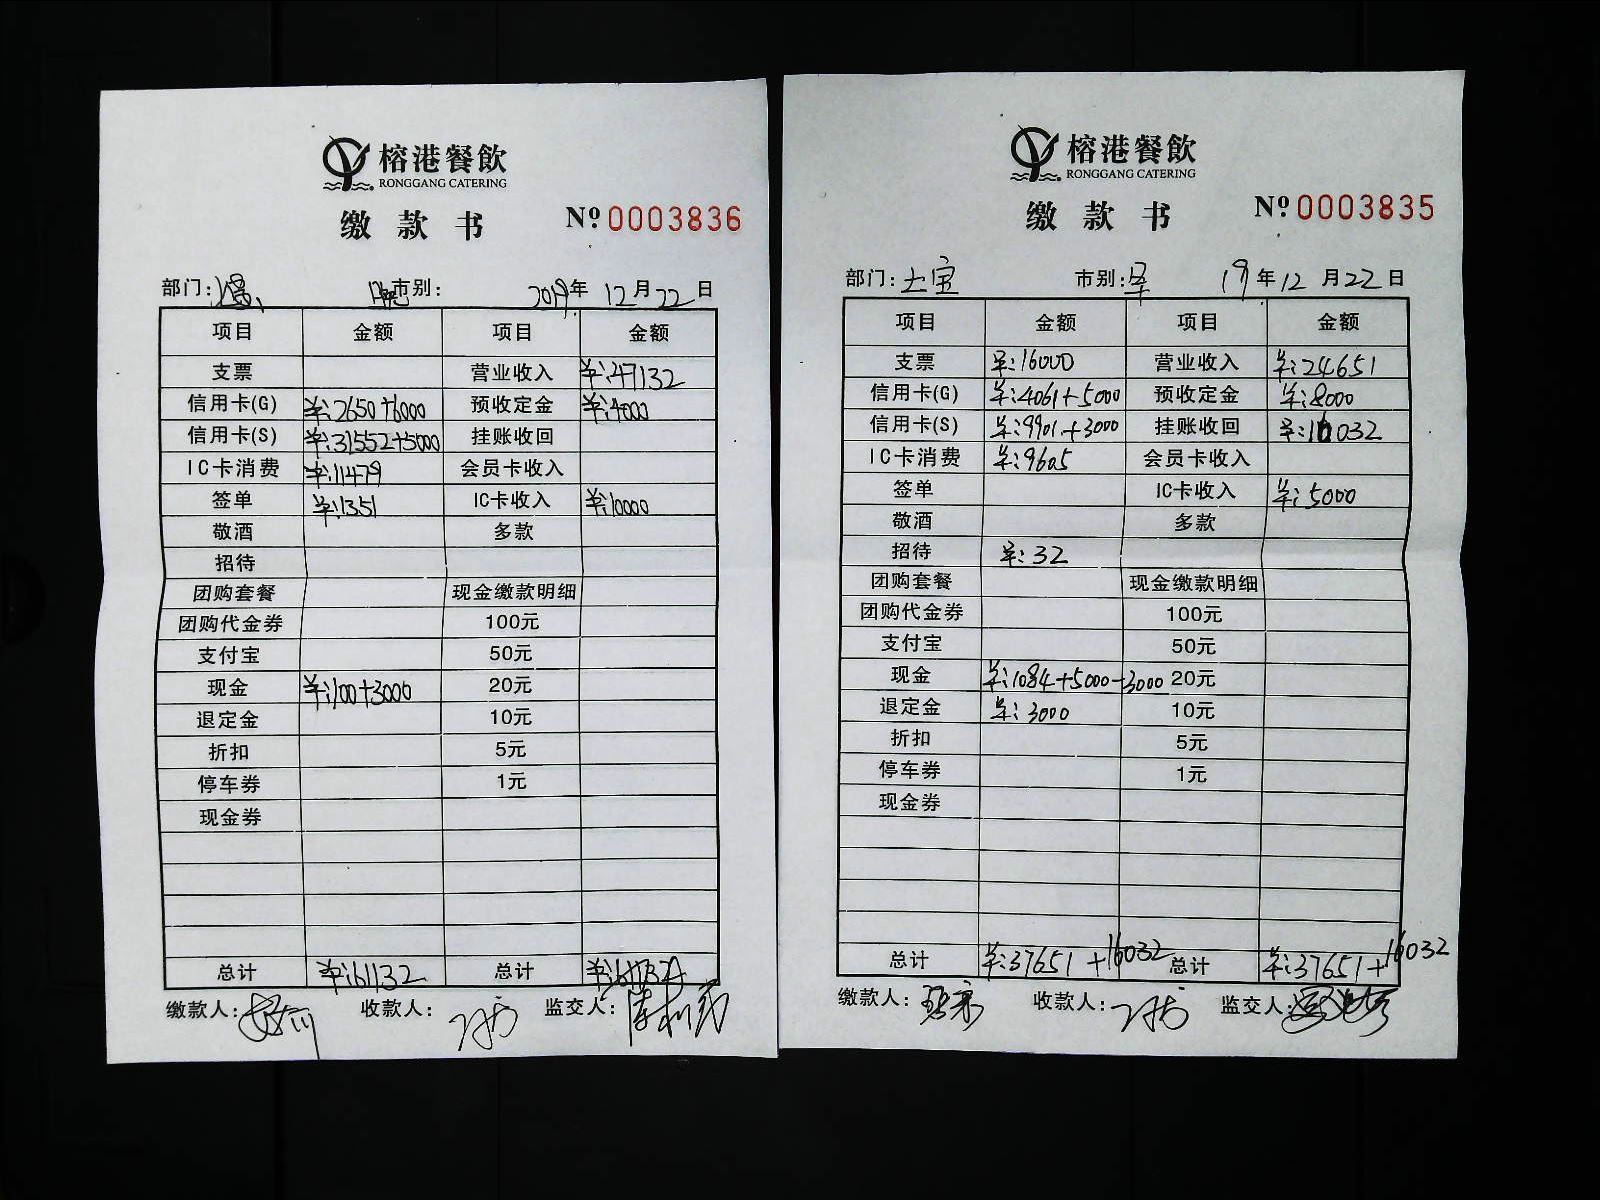 榕港餐飲
RONGGANG CATERING
缴款书 Nº 0003836
部门: 市别: 2019年12月22日
项目 金额 项目 金额
支票 营业收入 ¥:47132
信用卡(G) ¥:2650+6000 预收定金 ¥:4000
信用卡(S) ¥:31552+5000 挂账收回
IC卡消费 ¥:11479 会员卡收入
签单 ¥:1351 IC卡收入 ¥:10000
敬酒 多款
招待
团购套餐 现金缴款明细
团购代金券 100元
支付宝 50元
现金 ¥:100+3000 20元
退定金 10元
折扣 5元
停车券 1元
现金券
总计 ¥:61132 总计
缴款人: 收款人: 监交人:
榕港餐飲
RONGGANG CATERING
缴款书 Nº 0003835
部门: 大宝 市别: 早 19年12月22日
项目 金额 项目 金额
支票 ¥:16000 营业收入 ¥:24651
信用卡(G) ¥:4061+5000 预收定金 ¥:8000
信用卡(S) ¥:9901+3000 挂账收回 ¥:16032
IC卡消费 ¥:9605 会员卡收入
签单 IC卡收入 ¥:5000
敬酒 多款
招待 ¥:32
团购套餐 现金缴款明细
团购代金券 100元
支付宝 50元
现金 ¥:1084+5000-3000 20元
退定金 ¥:3000 10元
折扣 5元
停车券 1元
现金券
总计 ¥:37651+16032 总计 ¥:37651+16032
缴款人: 收款人: 监交人: